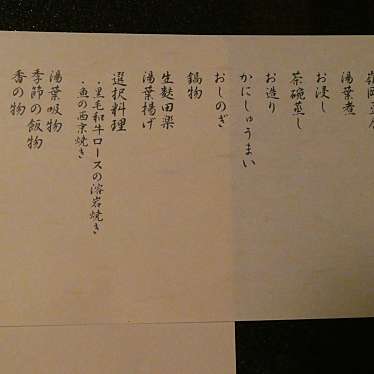 湯葉煮
お浸し
茶碗蒸し
お造り
かにしゅうまい
おしのぎ
鍋物
生麩田楽
湯葉揚げ
選択料理
・黒毛和牛ロースの溶岩焼き
・魚の西京焼き
湯葉吸物
季節の飯物
香の物